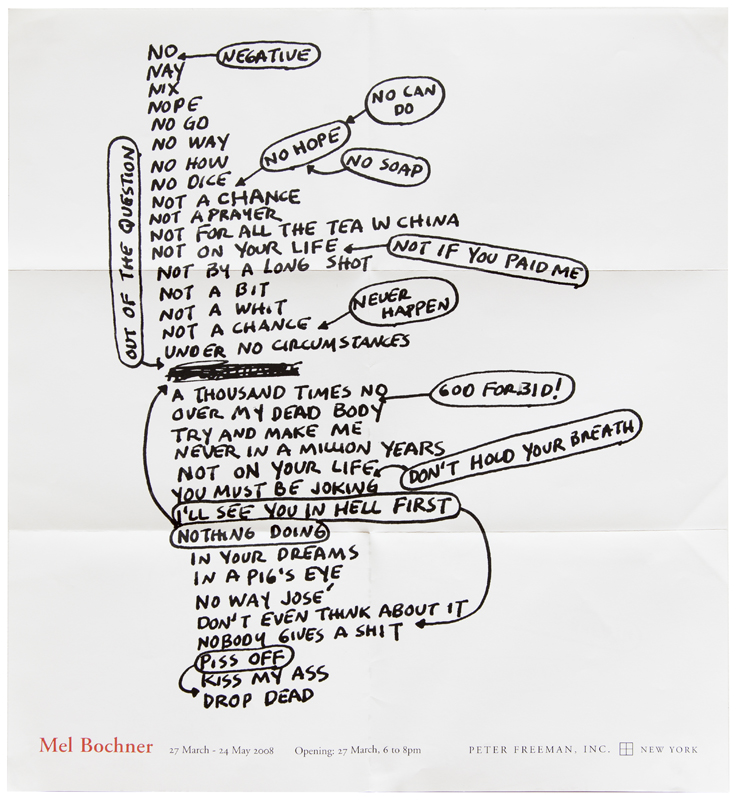 NO
NEGATIVE
NAY
NIX
NOPE
NO CAN
DO
NO GO
NO WAY
NO HOPE
NO HOW
NO SOAP
NO DICE
OUT OF THE QUESTION
NOT A CHANCE
NOT A PRAYER
NOT FOR ALL THE TEA IN CHINA
NOT ON YOUR LIFE
NOT IF YOU PAID ME
NOT BY A LONG SHOT
NOT A BIT
NOT A WHIT
NEVER
HAPPEN
NOT A CHANCE
UNDER NO CIRCUMSTANCES
A THOUSAND TIMES NO
GOD FORBID!
OVER MY DEAD BODY
TRY AND MAKE ME
NEVER IN A MILLION YEARS
NOT ON YOUR LIFE
DON'T HOLD YOUR BREATH
YOU MUST BE JOKING
I'LL SEE YOU IN HELL FIRST
NOTHING DOING
IN YOUR DREAMS
IN A PIG'S EYE
NO WAY JOSÉ
DON'T EVEN THINK ABOUT IT
NOBODY GIVES A SHIT
PISS OFF
KISS MY ASS
DROP DEAD
Mel Bochner 27 March - 24 May 2008 Opening: 27 March, 6 to 8pm PETER FREEMAN, INC. NEW YORK